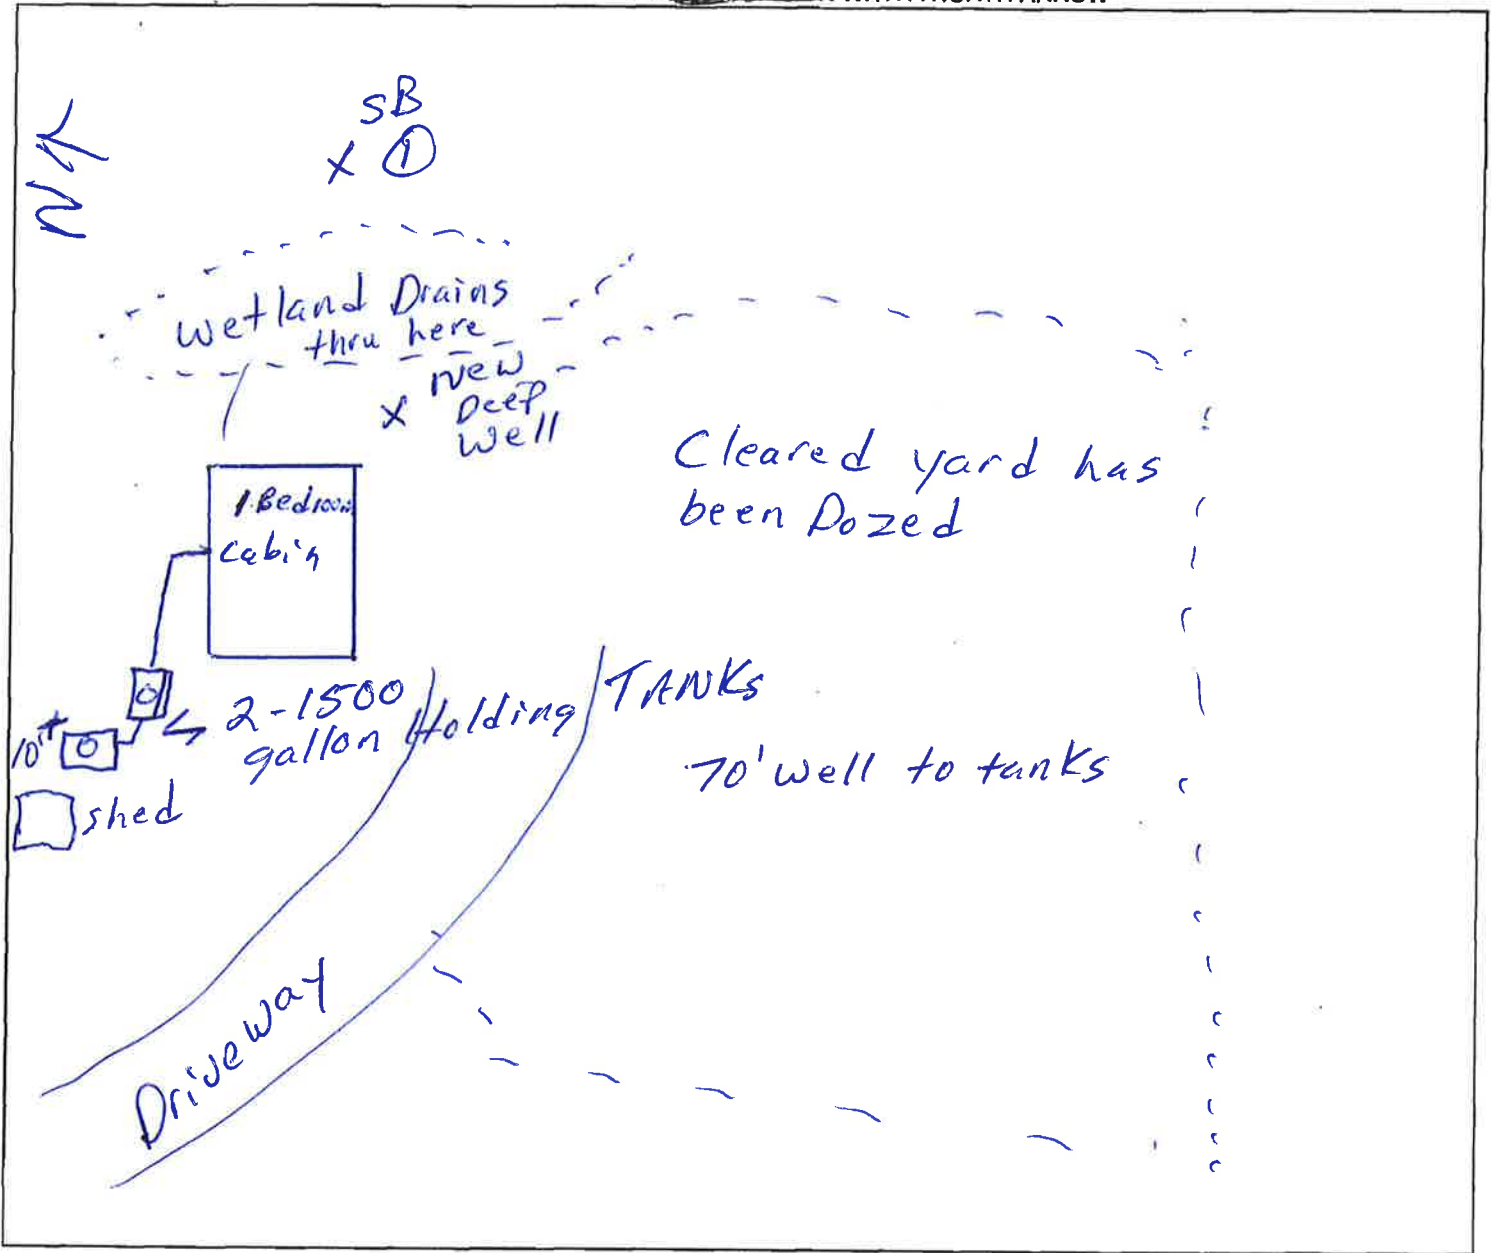 N
SB
X 1
Wetland Drains
thru here
X New
Deep
Well
Cleared yard has
been Dozed
1 Bedroom
Cabin
2-1500 Holding TANKS
gallon
10'+
70' well to tanks
shed
Driveway